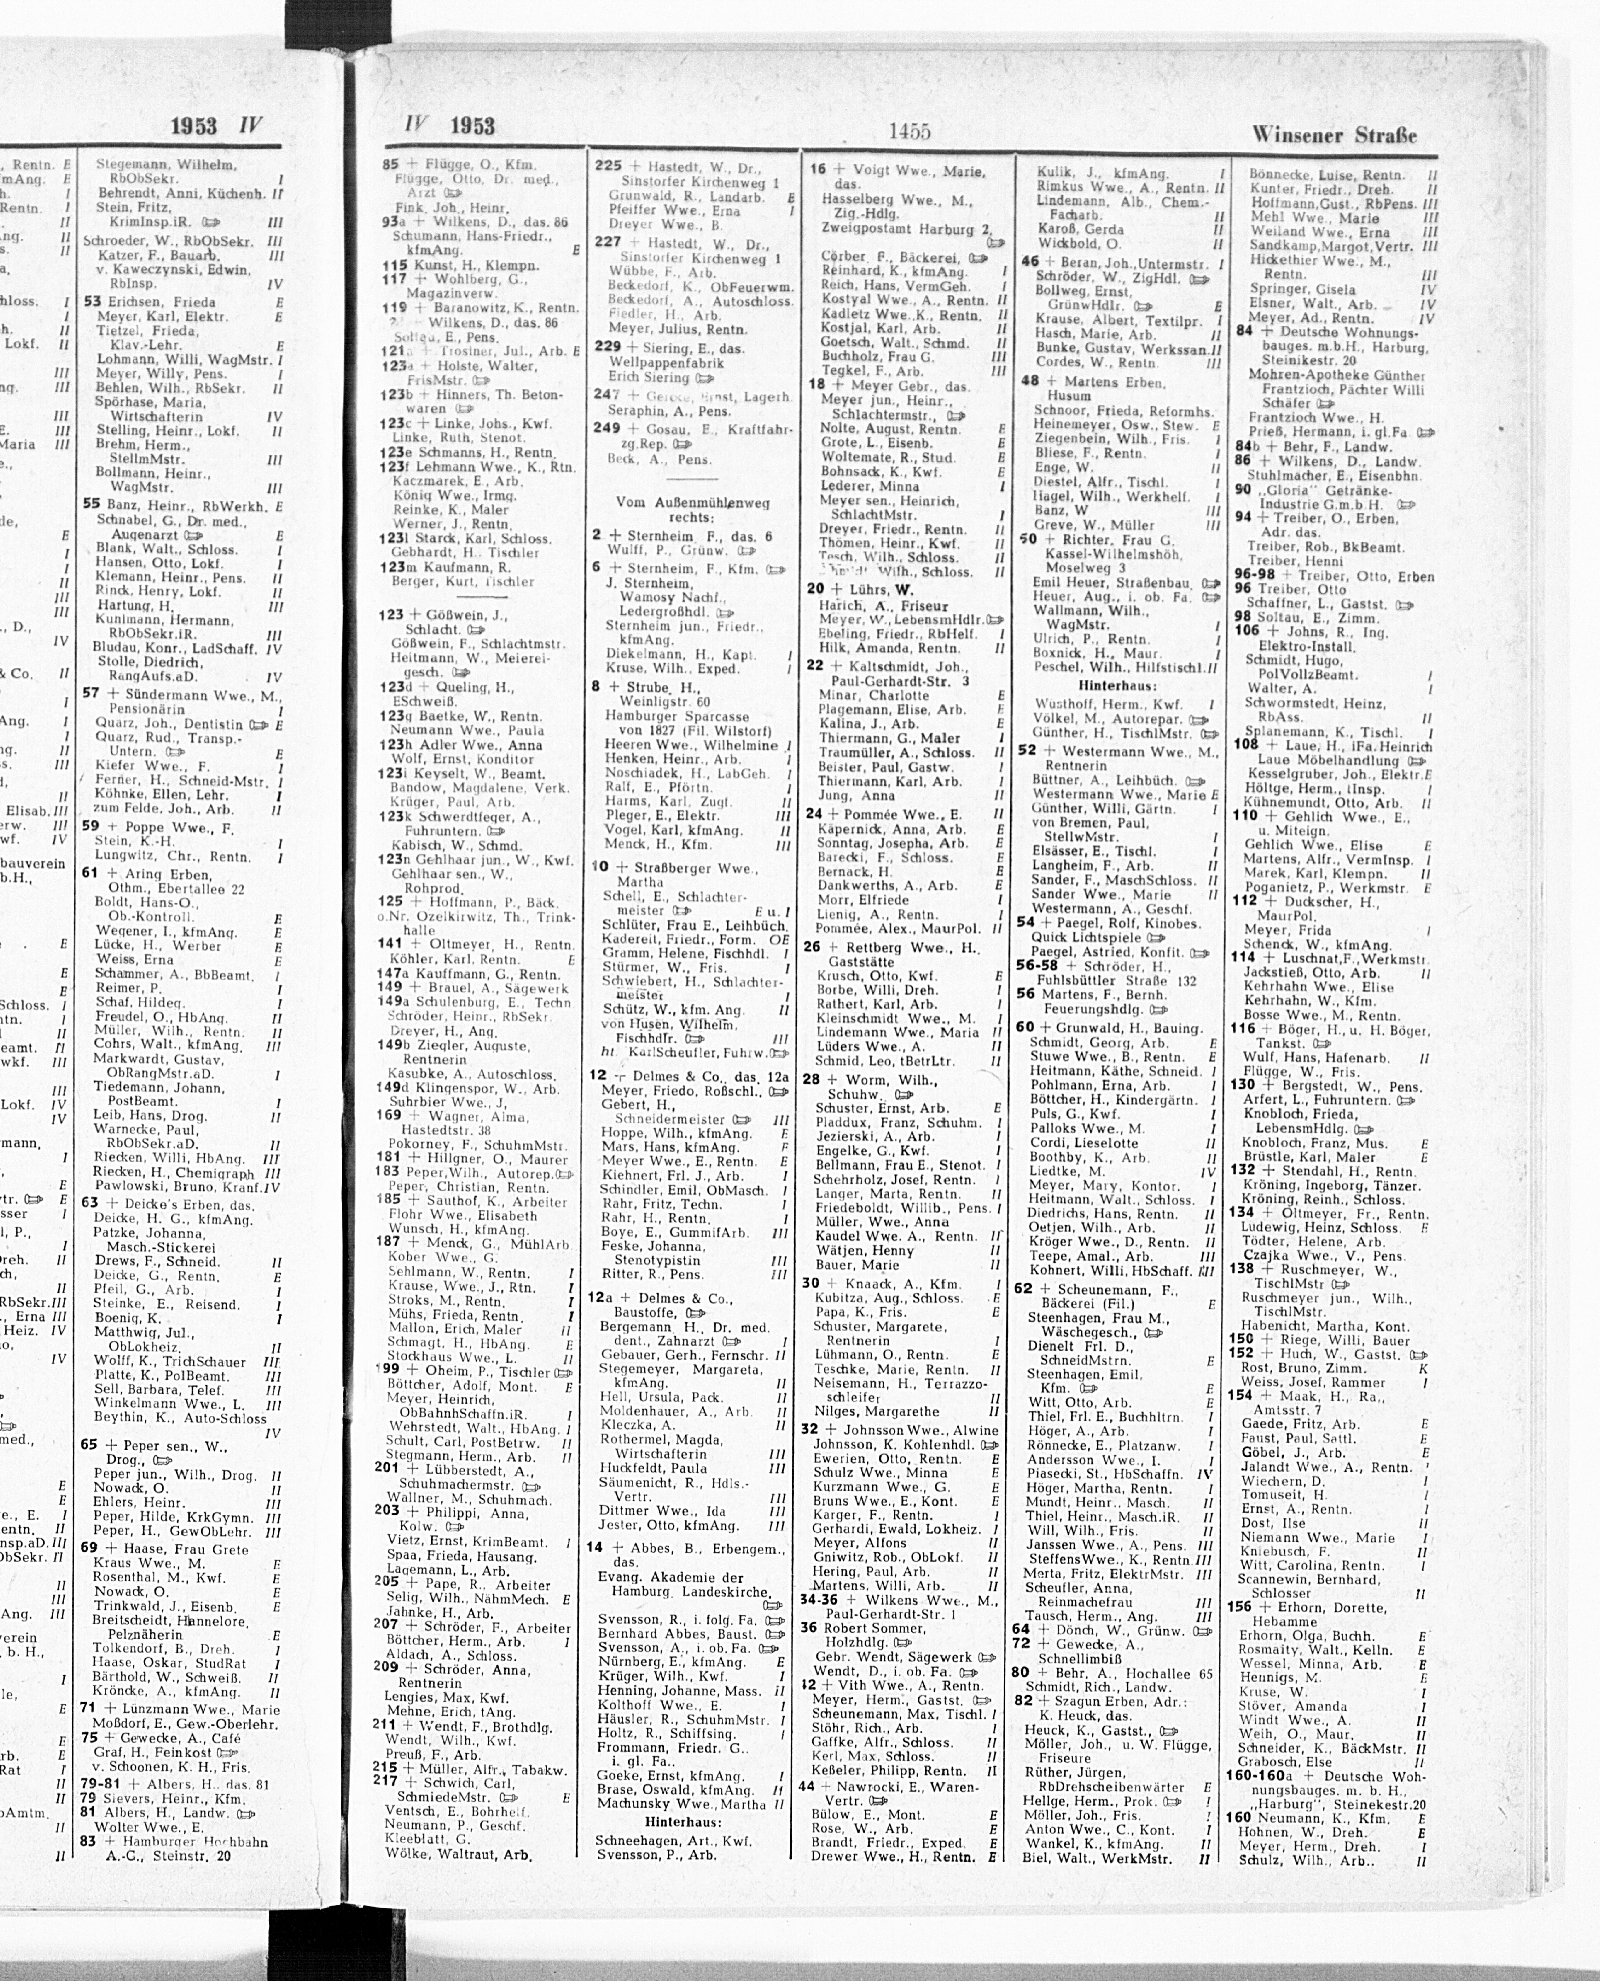 1953 IV
, Rentn. E
mAng. E
h. I
Rentn. I
. II
ng. II
s. II
a,
hloss. I
I
h. II
Lokf. II
III
ng. III
III
E. I
Maria III
e.,
de,
E
I
I
II
III
III
., D.,
IV
& Co. II
I
Ang. I
I
ng. II
s. III
d,
II
Elisab. III
erw. III
wf. IV
bauverein
b.H.,
E
E
E
Schloss. I
ntn. I
II
eamt. II
wkf. III
III
Lokf. IV
IV
mann,
I
E
tr. E
sser I
l, P.,
I
Dreh. II
ch,
II
RbSekr. III
., Erna III
Heiz. IV
o,
IV
med.,
E
E
e., E. I
entn. II
nsp.aD. III
ObSekr. II
II
III
Ang. III
verein
. b. H.,
I
le,
E
E
rb. E
Rat I
II
II
bAmtm.
II
II
Stegemann, Wilhelm,
RbObSekr. I
Behrendt, Anni, Küchenh. II
Stein, Fritz,
KrimInsp.iR. III
Schroeder, W., RbObSekr. III
Katzer, F., Bauarb. III
v. Kaweczynski, Edwin,
RbInsp. IV
53 Erichsen, Frieda E
Meyer, Karl, Elektr. E
Tietzel, Frieda,
Klav.-Lehr. E
Lohmann, Willi, WagMstr. I
Meyer, Willy, Pens. I
Behlen, Wilh., RbSekr. II
Spörhase, Maria,
Wirtschafterin IV
Stelling, Heinr., Lokf. II
Brehm, Herm.,
StellmMstr. III
Bollmann, Heinr.,
WagMstr. III
55 Banz, Heinr., RbWerkh. E
Schnabel, G., Dr. med.,
Augenarzt E
Blank, Walt., Schloss. I
Hansen, Otto, Lokf. I
Klemann, Heinr., Pens. II
Rinck, Henry, Lokf. II
Hartung, H. III
Kuhlmann, Hermann,
RbObSekr.iR. III
Bludau, Konr., LadSchaff. IV
Stolle, Diedrich,
RangAufs.aD. IV
57 + Sündermann Wwe., M.,
Pensionärin I
Quarz, Joh., Dentistin E
Quarz, Rud., Transp.-
Untern. E
Kiefer Wwe., F. I
Ferner, H., Schneid-Mstr. I
Köhnke, Ellen, Lehr. I
zum Felde, Joh., Arb. II
59 + Poppe Wwe., F.
Stein, K.-H. I
Lungwitz, Chr., Rentn. I
61 + Aring Erben,
Othm., Ebertallee 22
Boldt, Hans-O.,
Ob.-Kontroll. E
Wegener, I., kfmAng. E
Lücke, H., Werber E
Weiss, Erna E
Schammer, A., BbBeamt. I
Reimer, P. I
Schaf, Hildeg. I
Freudel, O., HbAng. II
Müller, Wilh., Rentn. II
Cohrs, Walt., kfmAng. III
Markwardt, Gustav,
ObRangMstr.aD. I
Tiedemann, Johann,
PostBeamt. I
Leib, Hans, Drog. II
Warnecke, Paul,
RbObSekr.aD. II
Riecken, Willi, HbAng. III
Riecken, H., Chemigraph III
Pawlowski, Bruno, Kranf. IV
63 + Deicke's Erben, das.
Deicke, H. G., kfmAng.
Patzke, Johanna,
Masch.-Stickerei
Drews, F., Schneid. II
Deicke, G., Rentn. E
Pfeil, G., Arb. I
Steinke, E., Reisend. I
Boenig, K. I
Matthwig, Jul.,
ObLokheiz. II
Wolff, K., TrichSchauer III
Platte, K., PolBeamt. III
Sell, Barbara, Telef. III
Winkelmann Wwe., L. III
Beythin, K., Auto-Schloss
IV
65 + Peper sen., W.,
Drog.,
Peper jun., Wilh., Drog. II
Nowack, O. II
Ehlers, Heinr. III
Peper, Hilde, KrkGymn. III
Peper, H., GewObLehr. III
69 + Haase, Frau Grete
Kraus Wwe., M. E
Rosenthal, M., Kwf. E
Nowack, O. E
Trinkwald, J., Eisenb. E
Breitscheidt, Hannelore,
Pelznäherin E
Tolkendorf, B., Dreh. I
Haase, Oskar, StudRat I
Bärthold, W., Schweiß. II
Kröncke, A., kfmAng. II
71 + Lünzmann Wwe., Marie
Moßdorf, E., Gew.-Oberlehr.
75 + Gewecke, A., Café
Graf, H., Feinkost
v. Schoonen, K. H., Fris.
79-81 + Albers, H., das. 81
79 Sievers, Heinr., Kfm.
81 Albers, H., Landw.
Wolter Wwe., E.
83 + Hamburger Hochbahn
A.-G., Steinstr. 20
IV 1953
1455
Winsener Straße
85 + Flügge, O., Kfm.
Flügge, Otto, Dr. med.,
Arzt
Fink, Joh., Heinr.
93a + Wilkens, D., das. 86
Schumann, Hans-Friedr.,
kfmAng. E
115 Kunst, H., Klempn.
117 + Wohlberg, G.,
Magazinverw.
119 + Baranowitz, K., Rentn.
+ Wilkens, D., das. 86
Soltau, E., Pens.
121a + Trostner, Jul., Arb. E
123a + Holste, Walter,
FrisMstr.
123b + Hinners, Th. Beton-
waren
123c + Linke, Johs., Kwf.
Linke, Ruth, Stenot.
123e Schmanns, H., Rentn.
123f Lehmann Wwe., K., Rtn.
Kaczmarek, E., Arb.
König Wwe., Irmg.
Reinke, K., Maler
Werner, J., Rentn.
123l Starck, Karl, Schloss.
Gebhardt, H., Tischler
123m Kaufmann, R.
Berger, Kurt, Tischler
123 + Gößwein, J.,
Schlacht.
Gößwein, F., Schlachtmstr.
Heitmann, W., Meierei-
gesch.
123d + Queling, H.,
ESchweiß.
123g Baetke, W., Rentn.
Neumann Wwe., Paula
123h Adler Wwe., Anna
Wolf, Ernst, Konditor
123i Keyselt, W., Beamt.
Bandow, Magdalene, Verk.
Krüger, Paul, Arb.
123k Schwerdtfeger, A.,
Fuhruntern.
Kabisch, W., Schmd.
123n Gehlhaar jun., W., Kwf.
Gehlhaar sen., W.,
Rohprod.
125 + Hoffmann, P., Bäck.
o.Nr. Ozelkirwitz, Th., Trink-
halle
141 + Oltmeyer, H., Rentn.
Köhler, Karl, Rentn. E
147a Kauffmann, G., Rentn.
149 + Brauel, A., Sägewerk
149a Schulenburg, E., Techn
Schröder, Heinr., RbSekr.
Dreyer, H., Ang.
149b Ziegler, Auguste,
Rentnerin
Kasubke, A., Autoschloss.
149d Klingenspor, W., Arb.
Suhrbier Wwe., J.
169 + Wagner, Alma,
Hastedtstr. 38
Pokorney, F., SchuhmMstr.
181 + Hillgner, O., Maurer
183 Peper, Wilh., Autorep.
Peper, Christian, Rentn.
185 + Sauthof, K., Arbeiter
Flohr Wwe., Elisabeth
Wunsch, H., kfmAng.
187 + Menck, G., MühlArb.
Kober Wwe., G.
Sehlmann, W., Rentn. I
Krause, Wwe., J., Rtn. I
Stroks, M., Rentn. I
Mühs, Frieda, Rentn. I
Mallon, Erich, Maler II
Schmagt, H., HbAng. E
Stockhaus Wwe., L. II
199 + Oheim, P., Tischler
Böttcher, Adolf, Mont. E
Meyer, Heinrich,
ObBahnhSchaffn.iR. I
Wehrstedt, Walt., HbAng. I
Schult, Carl, PostBetrw. II
Stegmann, Herm., Arb. II
201 + Lübberstedt, A.,
Schuhmachermstr.
Wallner, M., Schuhmach.
203 + Philippi, Anna,
Kolw.
Vietz, Ernst, KrimBeamt. I
Spaa, Frieda, Hausang.
Lagemann, L., Arb.
205 + Pape, R., Arbeiter
Selig, Wilh., NähmMech. E
Jahnke, H., Arb.
207 + Schröder, F., Arbeiter
Böttcher, Herm., Arb. I
Aldach, A., Schloss.
209 + Schröder, Anna,
Rentnerin
Lengies, Max, Kwf.
Mehne, Erich, tAng.
211 + Wendt, F., Brothdlg.
Wendt, Wilh., Kwf.
Preuß, F., Arb.
215 + Müller, Alfr., Tabakw.
217 + Schwich, Carl,
SchmiedeMstr. E
Ventsch, E., Bohrhelf.
Neumann, P., Geschf.
Kleeblatt, G.
Wölke, Waltraut, Arb.
225 + Hastedt, W., Dr.,
Sinstorfer Kirchenweg 1
Grunwald, R., Landarb. E
Pfeiffer Wwe., Erna I
Dreyer Wwe., B.
227 + Hastedt, W., Dr.,
Sinstorfer Kirchenweg 1
Wübbe, F., Arb.
Beckedorf, K., ObFeuerwm.
Beckedorf, A., Autoschloss.
Fiedler, H., Arb.
Meyer, Julius, Rentn.
229 + Siering, E., das.
Wellpappenfabrik
Erich Siering
247 + Gercke, Ernst, Lagerh.
Seraphin, A., Pens.
249 + Gosau, E., Kraftfahr-
zg.Rep.
Beck, A., Pens.
Vom Außenmühlenweg
rechts:
2 + Sternheim, F., das. 6
Wulff, P., Grünw.
6 + Sternheim, F., Kfm.
J. Sternheim,
Wamosy Nachf.,
Ledergroßhdl.
Sternheim jun., Friedr.,
kfmAng.
Diekelmann, H., Kapt. I
Kruse, Wilh., Exped. I
8 + Strube, H.,
Weinligstr. 60
Hamburger Sparcasse
von 1827 (Fil. Wilstorf)
Heeren Wwe., Wilhelmine I
Henken, Heinr., Arb. I
Noschiadek, H., LabGeh. I
Ralf, E., Pförtn. I
Harms, Karl, Zugf. II
Pleger, E., Elektr. III
Vogel, Karl, kfmAng. II
Menck, H., Kfm. III
10 + Straßberger Wwe.,
Martha
Schell, E., Schlachter-
meister E u. I
Schlüter, Frau E., Leihbüch.
Kadereit, Friedr., Form. OE
Gramm, Helene, Fischhdl. I
Stürmer, W., Fris. I
Schwiebert, H., Schlachter-
meister I
Schütz, W., kfm. Ang. II
von Husen, Wilhelm,
Fischhdlr. III
ht. KarlScheufler, Fuhrw.
12 + Delmes & Co., das. 12a
Meyer, Friedo, Roßschl.,
Gebert, H.,
Schneidermeister III
Hoppe, Wilh., kfmAng. E
Mars, Hans, kfmAng. E
Meyer Wwe., E., Rentn. E
Kiehnert, Frl. J., Arb. I
Schindler, Emil, ObMasch. I
Rahr, Fritz, Techn. I
Rahr, H., Rentn. I
Boye, E., GummifArb. III
Feske, Johanna,
Stenotypistin III
Ritter, R., Pens. III
12a + Delmes & Co.,
Baustoffe,
Bergemann, H., Dr. med.
dent., Zahnarzt I
Gebauer, Gerh., Fernschr. II
Stegemeyer, Margareta,
kfmAng. II
Hell, Ursula, Pack. II
Moldenhauer, A., Arb. II
Kleczka, A. II
Rothermel, Magda,
Wirtschafterin III
Huckfeldt, Paula III
Säumenicht, R., Hdls.-
Vertr. III
Dittmer Wwe., Ida III
Jester, Otto, kfmAng. III
14 + Abbes, B., Erbengem.,
das.
Evang. Akademie der
Hamburg. Landeskirche,
Svensson, R., i. folg. Fa.
Bernhard Abbes, Baust.
Svensson, A., i. ob. Fa.
Nürnberg, E., kfmAng. E
Krüger, Wilh., Kwf. I
Henning, Johanne, Mass. II
Kolthoff Wwe., E. I
Häusler, R., SchuhmMstr. I
Holtz, R., Schiffsing. I
Frommann, Friedr. G.,
i. gl. Fa.,
Goeke, Ernst, kfmAng. I
Brase, Oswald, kfmAng. II
Machunsky Wwe., Martha II
Hinterhaus:
Schneehagen, Art., Kwf.
Svensson, P., Arb.
16 + Voigt Wwe., Marie,
das.
Hasselberg Wwe., M.,
Zig.-Hdlg.
Zweigpostamt Harburg 2,
Cörber, F., Bäckerei,
Reinhard, K., kfmAng. I
Reich, Hans, VermGeh. I
Kostyal Wwe., A., Rentn. II
Kadletz Wwe., K., Rentn. II
Kostjal, Karl, Arb. II
Goetsch, Walt., Schmd. II
Buchholz, Frau G. III
Tegkel, F., Arb. III
18 + Meyer Gebr., das.
Meyer jun., Heinr.,
Schlachtermstr.,
Nolte, August, Rentn. E
Grote, L., Eisenb. E
Woltemate, R., Stud. E
Bohnsack, K., Kwf. E
Lederer, Minna I
Meyer sen., Heinrich,
SchlachtMstr. I
Dreyer, Friedr., Rentn. II
Thömen, Heinr., Kwf. II
Tesch, Wilh., Schloss. II
Wilh., Schloss. II
20 + Lührs, W.
Harich, A., Friseur
Meyer, W., LebensmHdlr.
Ebeling, Friedr., RbHelf. I
Hilk, Amanda, Rentn. II
22 + Kaltschmidt, Joh.,
Paul-Gerhardt-Str. 3
Minar, Charlotte E
Plagemann, Elise, Arb. E
Kalina, J., Arb. E
Thiermann, G., Maler I
Traumüller, A., Schloss. II
Beister, Paul, Gastw. I
Thiermann, Karl, Arb. I
Jung, Anna II
24 + Pommée Wwe., E. II
Käpernick, Anna, Arb. E
Sonntag, Josepha, Arb. E
Barecki, F., Schloss. E
Bernack, H. E
Dankwerths, A., Arb. E
Morr, Elfriede I
Lienig, A., Rentn. I
Pommée, Alex., MaurPol. II
26 + Rettberg Wwe., H.
Gaststätte
Krusch, Otto, Kwf. E
Borbe, Willi, Dreh. I
Rathert, Karl, Arb. I
Kleinschmidt Wwe., M. I
Lindemann Wwe., Maria II
Lüders Wwe., A. II
Schmid, Leo, tBetrLtr. II
28 + Worm, Wilh.,
Schuhw.
Schuster, Ernst, Arb. E
Pladdux, Franz, Schuhm. I
Jezierski, A., Arb. I
Engelke, G., Kwf. I
Bellmann, Frau E., Stenot. I
Schehrholz, Josef, Rentn. I
Langer, Marta, Rentn. II
Friedeboldt, Willib., Pens. I
Müller, Wwe., Anna
Kaudel Wwe. A., Rentn. II
Wätjen, Henny II
Bauer, Marie II
30 + Knaack, A., Kfm. I
Kubitza, Aug., Schloss. E
Papa, K., Fris. E
Schuster, Margarete,
Rentnerin I
Lühmann, O., Rentn. E
Teschke, Marie, Rentn. II
Neisemann, H., Terrazzo-
schleifer II
Nilges, Margarethe II
32 + Johnsson Wwe., Alwine
Johnsson, K. Kohlenhdl.
Ewerien, Otto, Rentn. E
Schulz Wwe., Minna E
Kurzmann Wwe., G. E
Bruns Wwe., E., Kont. E
Karger, F., Rentn. I
Gerhardi, Ewald, Lokheiz. I
Meyer, Alfons II
Gniwitz, Rob., ObLokf. II
Hering, Paul, Arb. II
Martens, Willi, Arb. II
34-36 + Wilkens Wwe., M.,
Paul-Gerhardt-Str. 1
36 Robert Sommer,
Holzhdlg.
Gebr. Wendt, Sägewerk
Wendt, D., i. ob. Fa.
42 + Vith Wwe., A., Rentn.
Meyer, Herm., Gastst.
Scheunemann, Max, Tischl. I
Stöhr, Rich., Arb. I
Gaffke, Alfr., Schloss. II
Kerl, Max, Schloss. II
Keßeler, Philipp, Rentn. II
44 + Nawrocki, E., Waren-
Vertr.
Bülow, E., Mont. E
Rose, W., Arb. E
Brandt, Friedr., Exped. E
Drewer Wwe., H., Rentn. E
Kulik, J., kfmAng. I
Rimkus Wwe., A., Rentn. II
Lindemann, Alb., Chem.-
Facharb. II
Karoß, Gerda II
Wickbold, O. II
46 + Beran, Joh., Untermstr. I
Schröder, W., ZigHdl.
Bollweg, Ernst,
GrünwHdlr. E
Krause, Albert, Textilpr. I
Hasch, Marie, Arb. II
Bunke, Gustav, Werkssan. II
Cordes, W., Rentn. III
48 + Martens Erben,
Husum
Schnoor, Frieda, Reformhs.
Heinemeyer, Osw., Stew. E
Ziegenbein, Wilh., Fris. I
Bliese, F., Rentn. I
Enge, W. II
Diestel, Alfr., Tischl. I
Hagel, Wilh., Werkhelf. I
Banz, W III
Greve, W., Müller III
50 + Richter, Frau G.
Kassel-Wilhelmshöh,
Moselweg 3
Emil Heuer, Straßenbau,
Heuer, Aug., i. ob. Fa.
Wallmann, Wilh.,
WagMstr. I
Ulrich, P., Rentn. I
Boxnick, H., Maur. I
Peschel, Wilh., Hilfstischl. II
Hinterhaus:
Wüsthoff, Herm., Kwf. I
Völkel, M., Autorepar.
Günther, H., TischlMstr.
52 + Westermann Wwe., M.,
Rentnerin
Büttner, A., Leihbüch.
Westermann Wwe., Marie E
Günther, Willi, Gärtn. I
von Bremen, Paul,
StellwMstr. I
Elsässer, E., Tischl. I
Langheim, F., Arb. II
Sander, F., MaschSchloss. II
Sander Wwe., Marie II
Westermann, A., Geschf.
54 + Paegel, Rolf, Kinobes.
Quick Lichtspiele
Paegel, Astried, Konfit.
56-58 + Schröder, H.,
Fuhlsbüttler Straße 132
56 Martens, F., Bernh.
Feuerungshdlg.
60 + Grunwald, H., Bauing.
Schmidt, Georg, Arb. E
Stuwe Wwe., B., Rentn. E
Heitmann, Käthe, Schneid. I
Pohlmann, Erna, Arb. I
Böttcher, H., Kindergärtn. I
Puls, G., Kwf. I
Palloks Wwe., M. I
Cordi, Lieselotte II
Boothby, K., Arb. II
Liedtke, M. IV
Meyer, Mary, Kontor. I
Heitmann, Walt., Schloss. I
Diedrichs, Hans, Rentn. II
Oetjen, Wilh., Arb. II
Kröger Wwe., D., Rentn. II
Teepe, Amal., Arb. III
Kohnert, Willi, HbSchaff. III
62 + Scheunemann, F.,
Bäckerei (Fil.) E
Steenhagen, Frau M.,
Wäschegesch.,
Dienelt Frl. D.,
SchneidMstrn. E
Steenhagen, Emil,
Kfm. E
Witt, Otto, Arb. E
Thiel, Frl. E., Buchhltrn. I
Höger, A., Arb. I
Rönnecke, E., Platzanw. I
Andersson Wwe., I. I
Piasecki, St., HbSchaffn. IV
Höger, Martha, Rentn. I
Mundt, Heinr., Masch. II
Thiel, Heinr., Masch.iR. II
Will, Wilh., Fris. II
Janssen Wwe., A., Pens. III
Steffens Wwe., K., Rentn. III
Merta, Fritz, ElektrMstr. III
Scheufler, Anna,
Reinmachefrau III
Tausch, Herm., Ang. III
64 + Dönch, W., Grünw.
72 + Gewecke, A.,
Schnellimbiß
80 + Behr, A., Hochallee 65
Schmidt, Rich., Landw.
82 + Szagun Erben, Adr.:
K. Heuck, das.
Heuck, K., Gastst.,
Möller, Joh., u. W. Flügge,
Friseure
Rüther, Jürgen,
RbDrehscheibenwärter E
Hellge, Herm., Prok. I
Möller, Joh., Fris. I
Anton Wwe., C., Kont. I
Wankel, K., kfmAng. II
Biel, Walt., WerkMstr. II
Bönnecke, Luise, Rentn. II
Kunter, Friedr., Dreh. II
Hoffmann, Gust., RbPens. III
Mehl Wwe., Marie III
Weiland Wwe., Erna III
Sandkamp, Margot, Vertr. III
Hickethier Wwe., M.,
Rentn. III
Springer, Gisela IV
Elsner, Walt., Arb. IV
Meyer, Ad., Rentn. IV
84 + Deutsche Wohnungs-
bauges. m.b.H., Harburg,
Steinikestr. 20
Mohren-Apotheke Günther
Frantzioch, Pächter Willi
Schäfer
Frantzioch Wwe., H.
Prieß, Hermann, i. gl.Fa.
84b + Behr, F., Landw.
86 + Wilkens, D., Landw.
Stuhlmacher, E., Eisenbhn.
90 „Gloria" Getränke-
Industrie G.m.b.H.
94 + Treiber, O., Erben,
Adr. das.
Treiber, Rob., BkBeamt.
Treiber, Henni
96-98 + Treiber, Otto, Erben
96 Treiber, Otto
Schaffner, L., Gastst.
98 Soltau, E., Zimm.
106 + Johns, R., Ing.
Elektro-Install.
Schmidt, Hugo,
PolVollzBeamt. I
Walter, A. I
Schwormstedt, Heinz,
RbAss. II
Splanemann, K., Tischl. I
108 + Laue, H., iFa. Heinrich
Laue Möbelhandlung
Kesselgruber, Joh., Elektr. E
Höltge, Herm., tInsp. I
Kühnemundt, Otto, Arb. II
110 + Gehlich Wwe., E.,
u. Miteign.
Gehlich Wwe., Elise E
Martens, Alfr., VermInsp. I
Marek, Karl, Klempn. II
Poganietz, P., Werkmstr. E
112 + Duckscher, H.,
MaurPol.
Meyer, Frida I
Schenck, W., kfmAng.
114 + Luschnat, F., Werkmstr.
Jackstieß, Otto, Arb. II
Kehrhahn Wwe., Elise
Kehrhahn, W., Kfm.
Bosse Wwe., M., Rentn.
116 + Böger, H., u. H. Böger,
Tankst.
Wulf, Hans, Hafenarb. II
Flügge, W., Fris.
130 + Bergstedt, W., Pens.
Arfert, L., Fuhruntern.
Knobloch, Frieda,
LebensmHdlg.
Knobloch, Franz, Mus. E
Brüstle, Karl, Maler E
132 + Stendahl, H., Rentn.
Kröning, Ingeborg, Tänzer.
Kröning, Reinh., Schloss.
134 + Oltmeyer, Fr., Rentn.
Ludewig, Heinz, Schloss. E
Tödter, Helene, Arb.
Czajka Wwe., V., Pens.
138 + Ruschmeyer, W.,
TischlMstr
Ruschmeyer jun., Wilh.,
TischlMstr.
Habenicht, Martha, Kont.
150 + Riege, Willi, Bauer
152 + Huch, W., Gastst.
Rost, Bruno, Zimm. K
Weiss, Josef, Rammer I
154 + Maak, H., Ra.,
Amtsstr. 7
Gaede, Fritz, Arb. E
Faust, Paul, Sattl. E
Göbel, J., Arb. E
Jalandt Wwe., A., Rentn. I
Wiechern, D. I
Tomuseit, H. I
Ernst, A., Rentn. I
Dost, Ilse II
Niemann Wwe., Marie I
Kniebusch, F. II
Witt, Carolina, Rentn. I
Scannewin, Bernhard,
Schlosser II
156 + Erhorn, Dorette,
Hebamme
Erhorn, Olga, Buchh. E
Rosmaity, Walt., Kelln. E
Wessel, Minna, Arb. E
Hennigs, M. E
Kruse, W. I
Stöver, Amanda I
Windt Wwe., A. II
Weih, O., Maur. II
Schneider, K., BäckMstr. II
Grabosch, Else II
160-160a + Deutsche Woh-
nungsbauges. m. b. H.,
„Harburg", Steinekestr.20
160 Neumann, K., Kfm. E
Hohnen, W., Dreh. E
Meyer, Herm., Dreh. I
Schulz, Wilh., Arb.. II